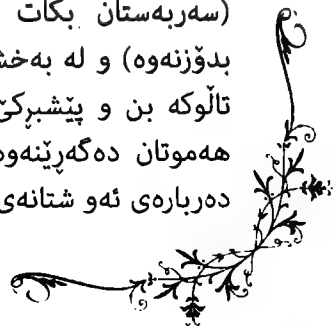 (سەربەستان بکات
بدۆزنەوە) و لە بەخش
تاڵوکە بن و پێشبڕکێ
هەموتان دەگەڕێنەوە
دەربارەی ئەو شتانەی